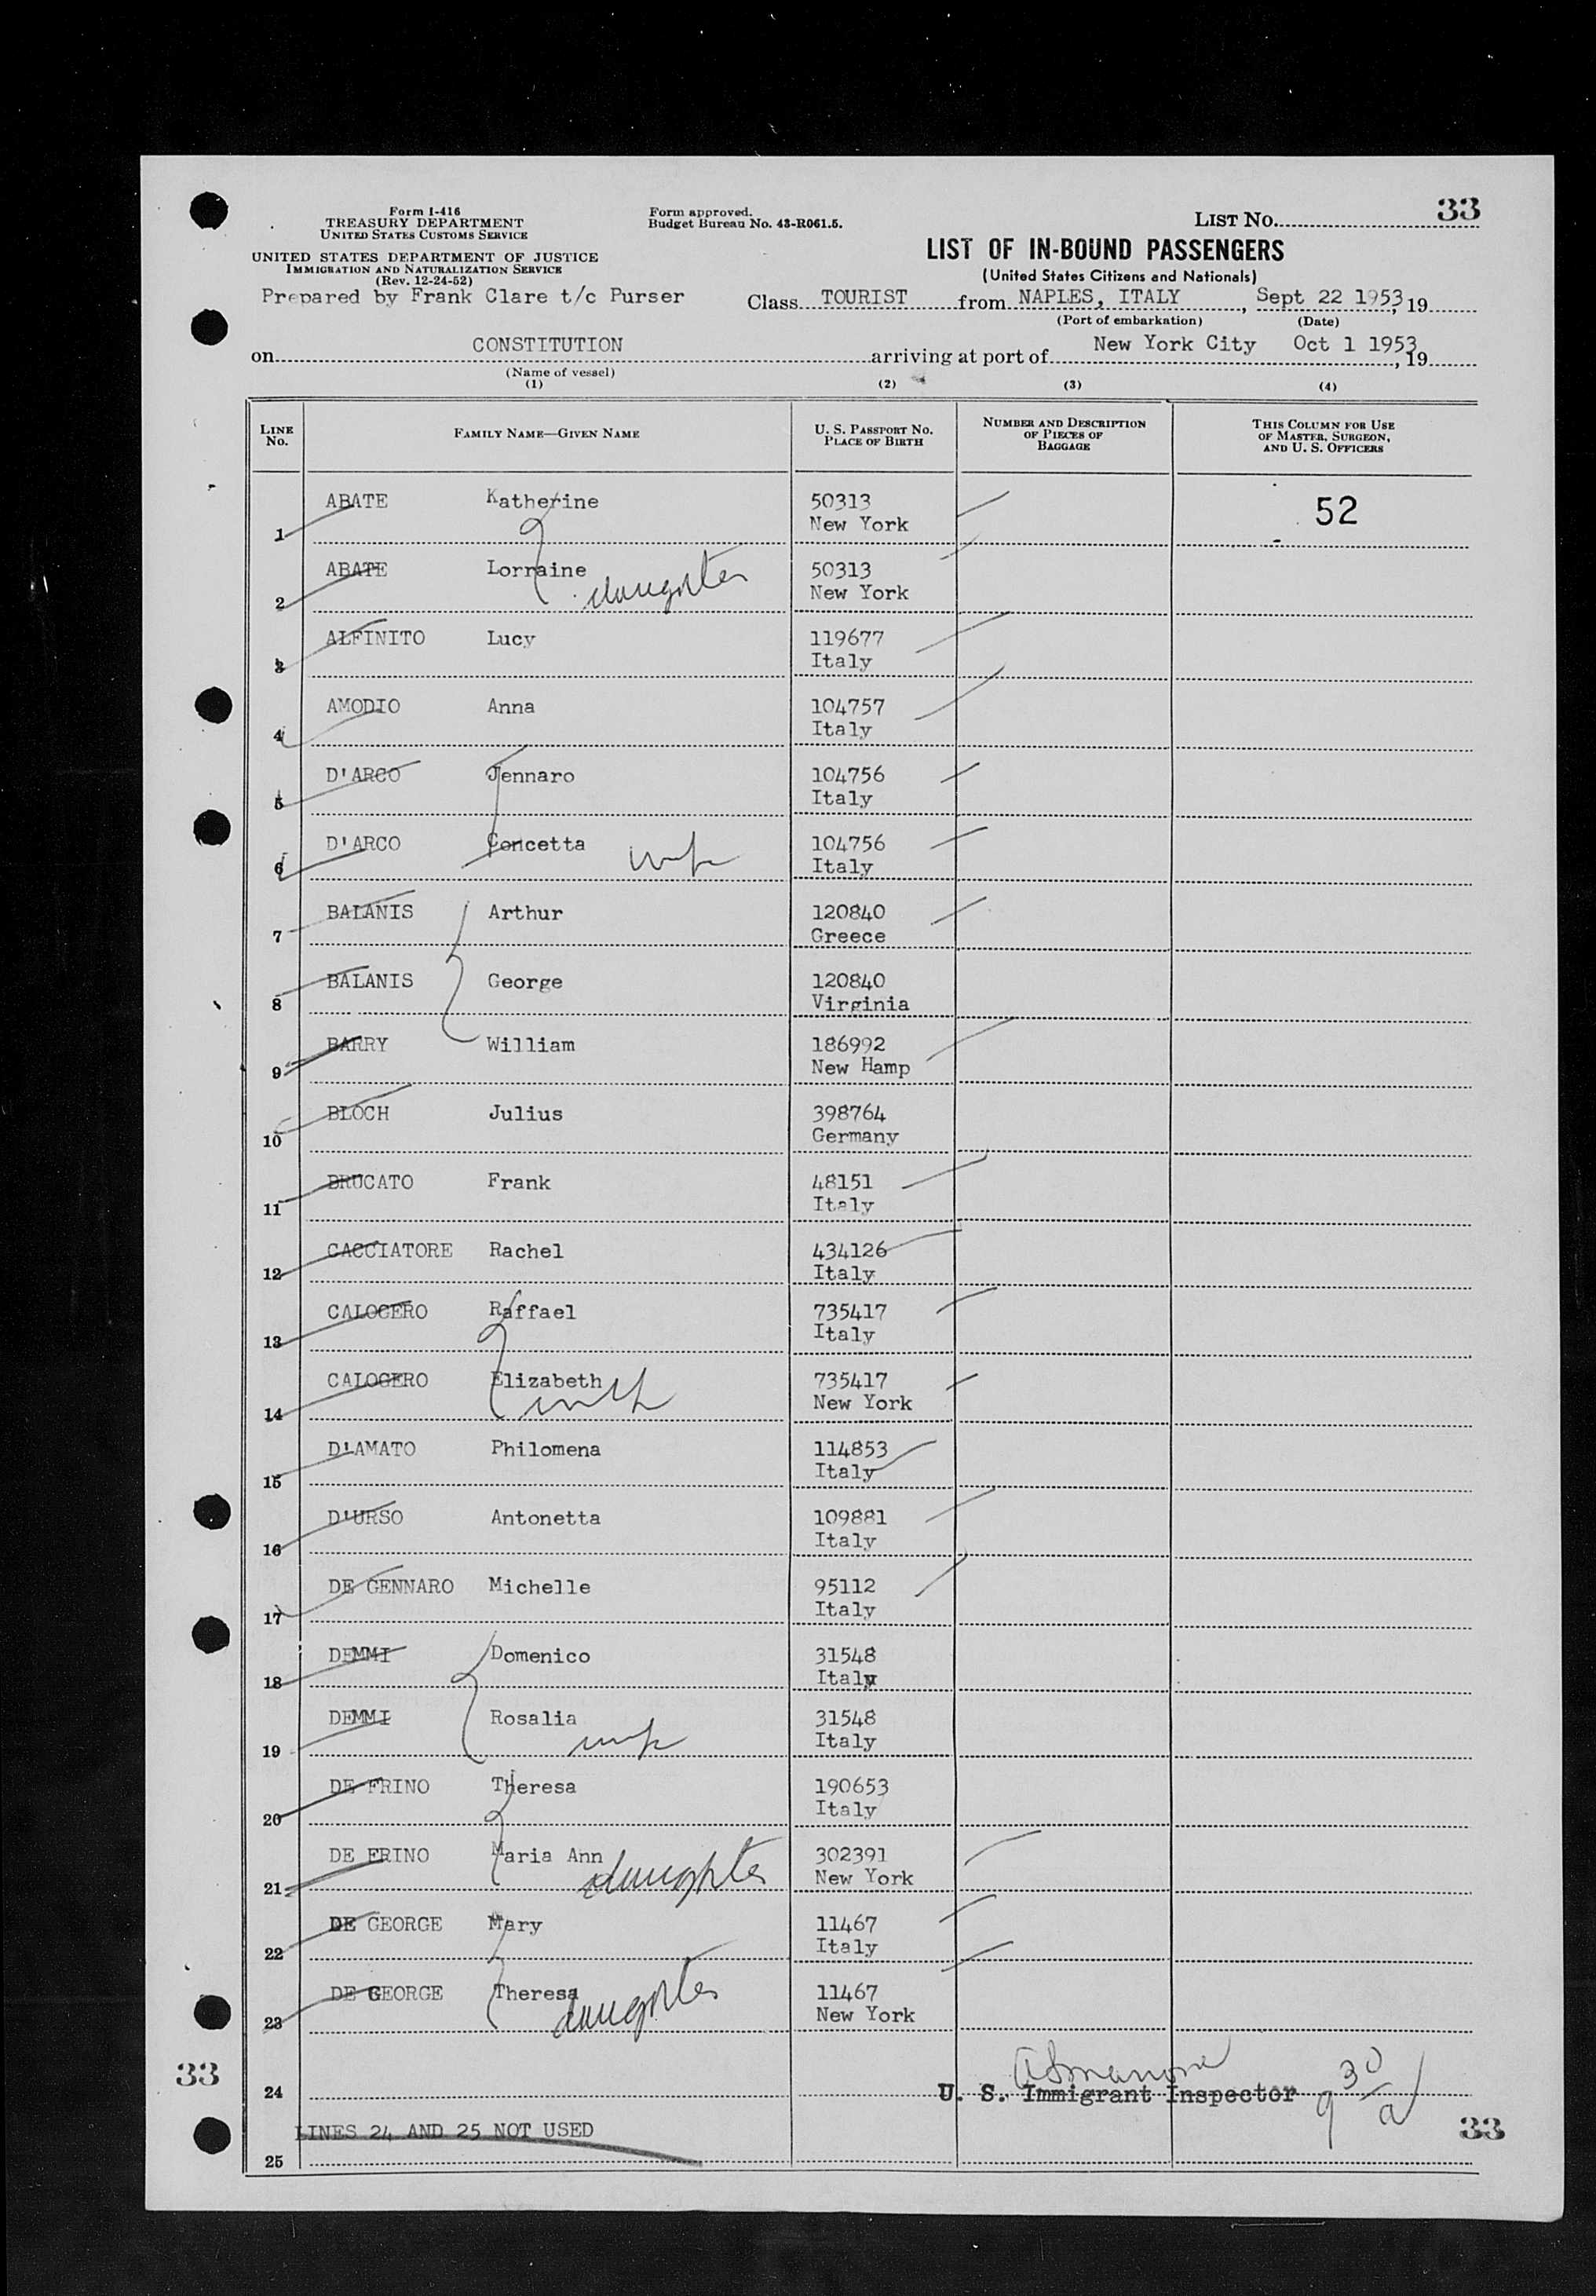 Form I-416
TREASURY DEPARTMENT
UNITED STATES CUSTOMS SERVICE
UNITED STATES DEPARTMENT OF JUSTICE
IMMIGRATION AND NATURALIZATION SERVICE
(Rev. 12-24-52)
Prepared by Frank Clare t/c Purser
Form approved.
Budget Bureau No. 43-R061.5.
LIST No. 33
LIST OF IN-BOUND PASSENGERS
(United States Citizens and Nationals)
Class TOURIST from NAPLES, ITALY, Sept 22 1953, 19
(Port of embarkation) (Date)
on CONSTITUTION arriving at port of New York City Oct 1 1953, 19
(Name of vessel)
(1) (2) (3) (4)
LINE No. FAMILY NAME—GIVEN NAME U. S. PASSPORT No. PLACE OF BIRTH NUMBER AND DESCRIPTION OF PIECES OF BAGGAGE THIS COLUMN FOR USE OF MASTER, SURGEON, AND U. S. OFFICERS
1 ABATE Katherine 50313 New York 52
2 ABATE Lorraine daughter 50313 New York
3 ALFINITO Lucy 119677 Italy
4 AMODIO Anna 104757 Italy
5 D'ARCO Jennaro 104756 Italy
6 D'ARCO Concetta wife 104756 Italy
7 BALANIS Arthur 120840 Greece
8 BALANIS George 120840 Virginia
9 BARRY William 186992 New Hamp
10 BLOCH Julius 398764 Germany
11 BRUCATO Frank 48151 Italy
12 CACCIATORE Rachel 434126 Italy
13 CALOGERO Raffael 735417 Italy
14 CALOGERO Elizabeth wife 735417 New York
15 D'AMATO Philomena 114853 Italy
16 D'URSO Antonetta 109881 Italy
17 DE GENNARO Michelle 95112 Italy
18 DEMMI Domenico 31548 Italy
19 DEMMI Rosalia wife 31548 Italy
20 DE FRINO Theresa 190653 Italy
21 DE FRINO Maria Ann daughter 302391 New York
22 DE GEORGE Mary 11467 Italy
23 DE GEORGE Theresa daughter 11467 New York
33
24 U. S. Immigrant Inspector 9 30/a
LINES 24 AND 25 NOT USED
33
25